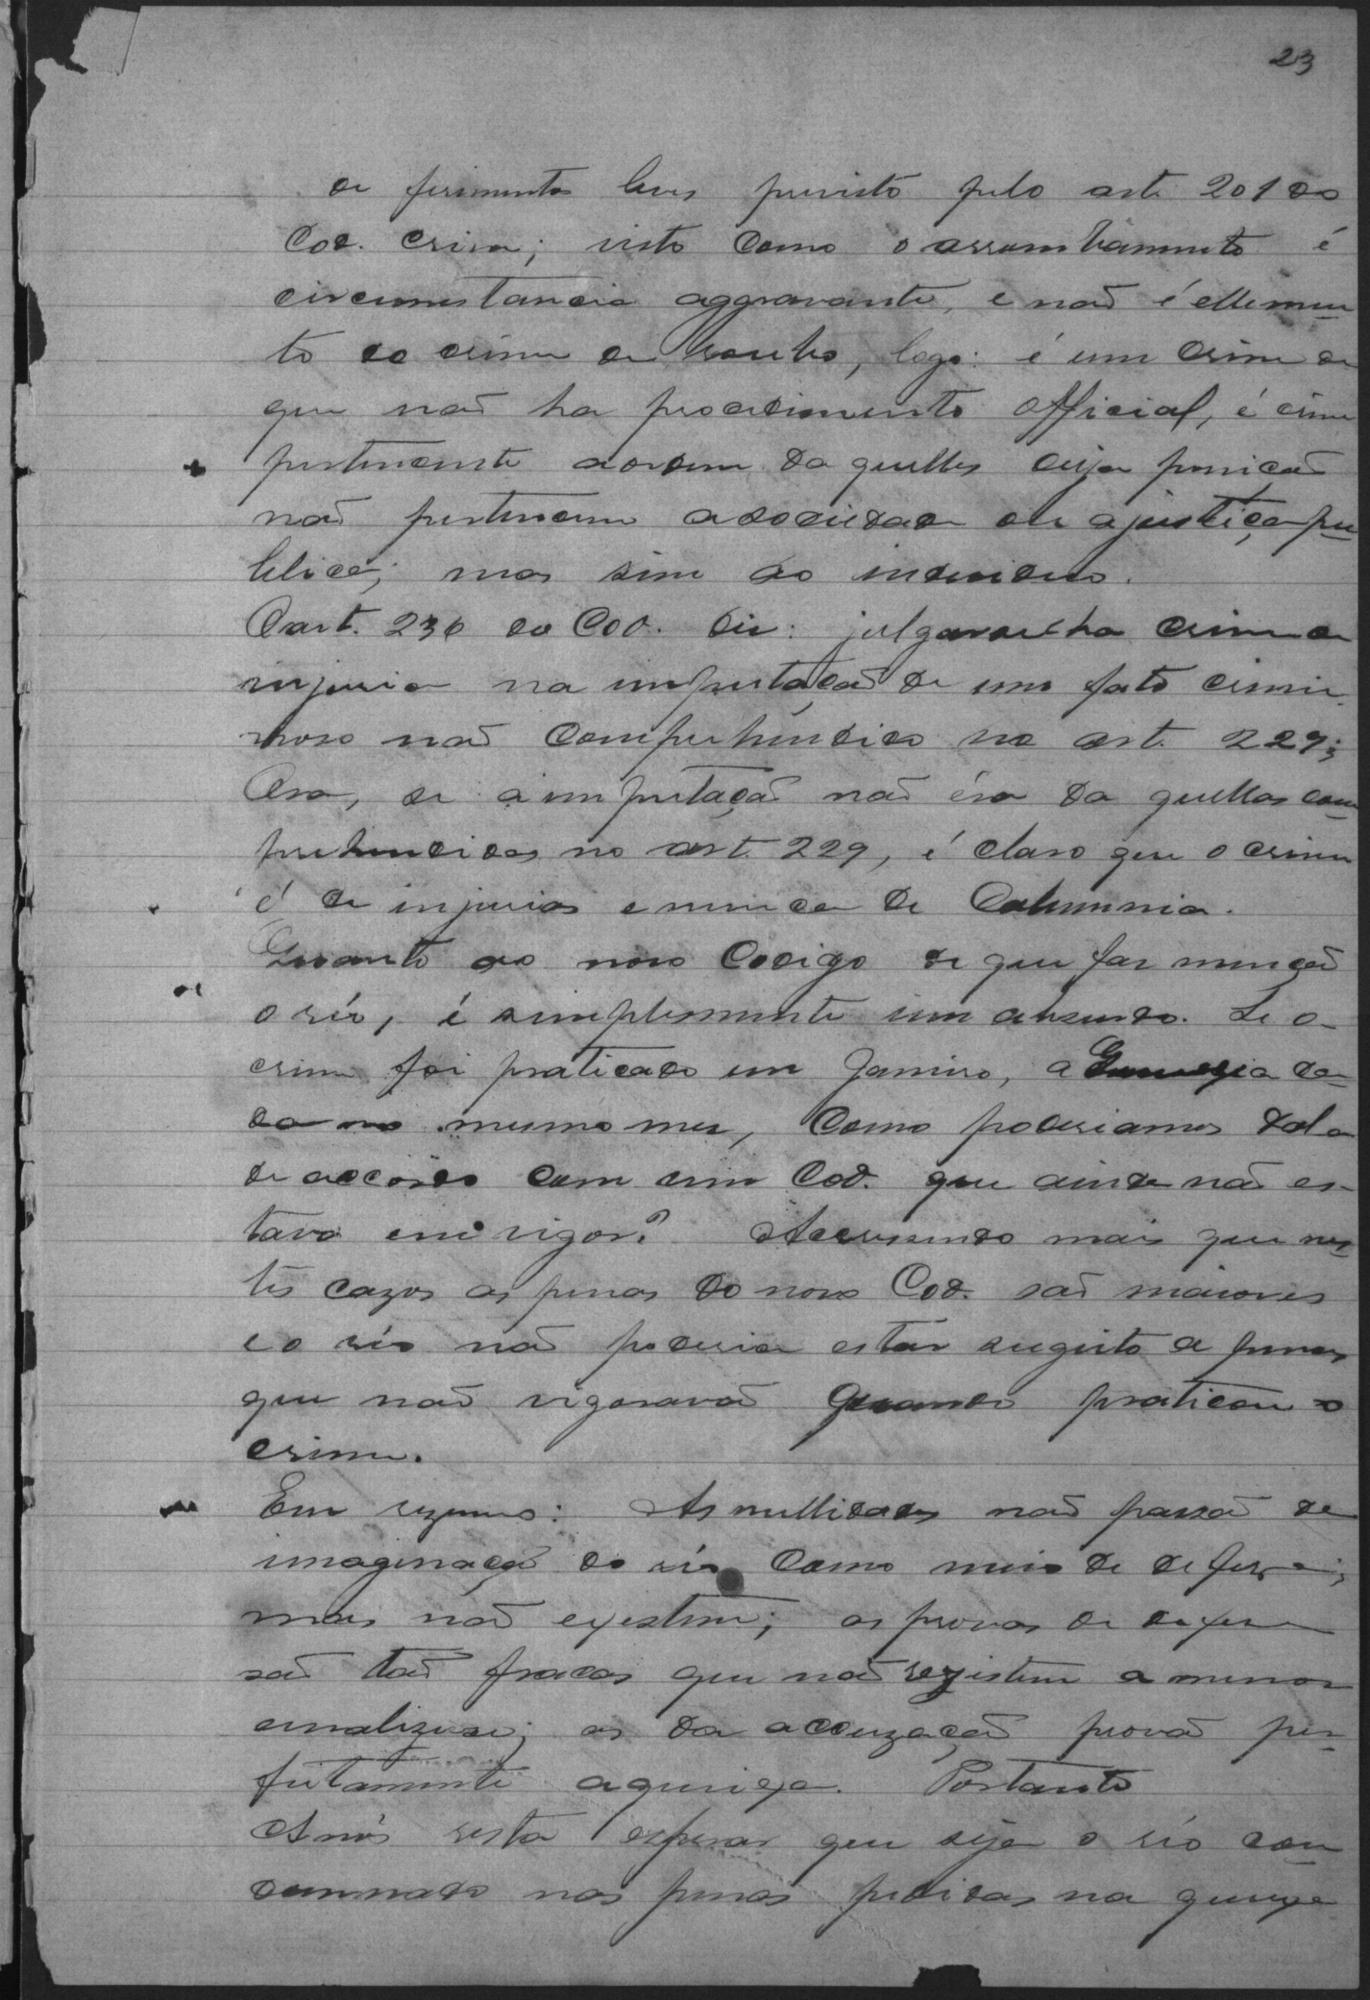 23
de ferimentos leves previsto pelo art. 201 do
Cod. Crim; visto como o arrombamento é
circumstancia aggravante, e não é ellemen-
to do crime de roubo, logo: é um crime de
que não ha procedimento official, é crime
pertencente a ordem daquelles cuja punição
não pertencem a sociedade ou a justiça pu-
blica; mas sim ao individuo.
O art. 236 do Cod. diz: julgar-se-ha crime de
injuria na imputação de um fato crimi-
noso não comprehendido no art. 229;
Ora, se a imputação não éra daquellas com-
prehendidas no art. 229, é claro que o crime
é de injurias e nunca de Calumnia.
Quanto ao novo Codigo de que faz menção
o réo, é simplesmente um absurdo. Se o
crime foi praticado em Janeiro, a queixa da-
da no mesmo mez, como poderiamos dal-a
de accordo com um Cod. que ainda não es-
tava em vigor? Accressendo mais que nes-
tes cazos as penas do novo Cod. são maiores
e o réo não poderia estar sugeito a penas
que não vigoravão quando praticou o
crime.
Em rezumo: As nullidades não passão de
imaginação do réo como meio de defeza;
mas não existem; as provas de defeza
são tão fracas que não rezistem a menor
analize; as da accuzação provão per-
feitamente a queixa. Portanto
A nós resta esperar que seja o réo con-
demnado nas penas pedidas na queixa